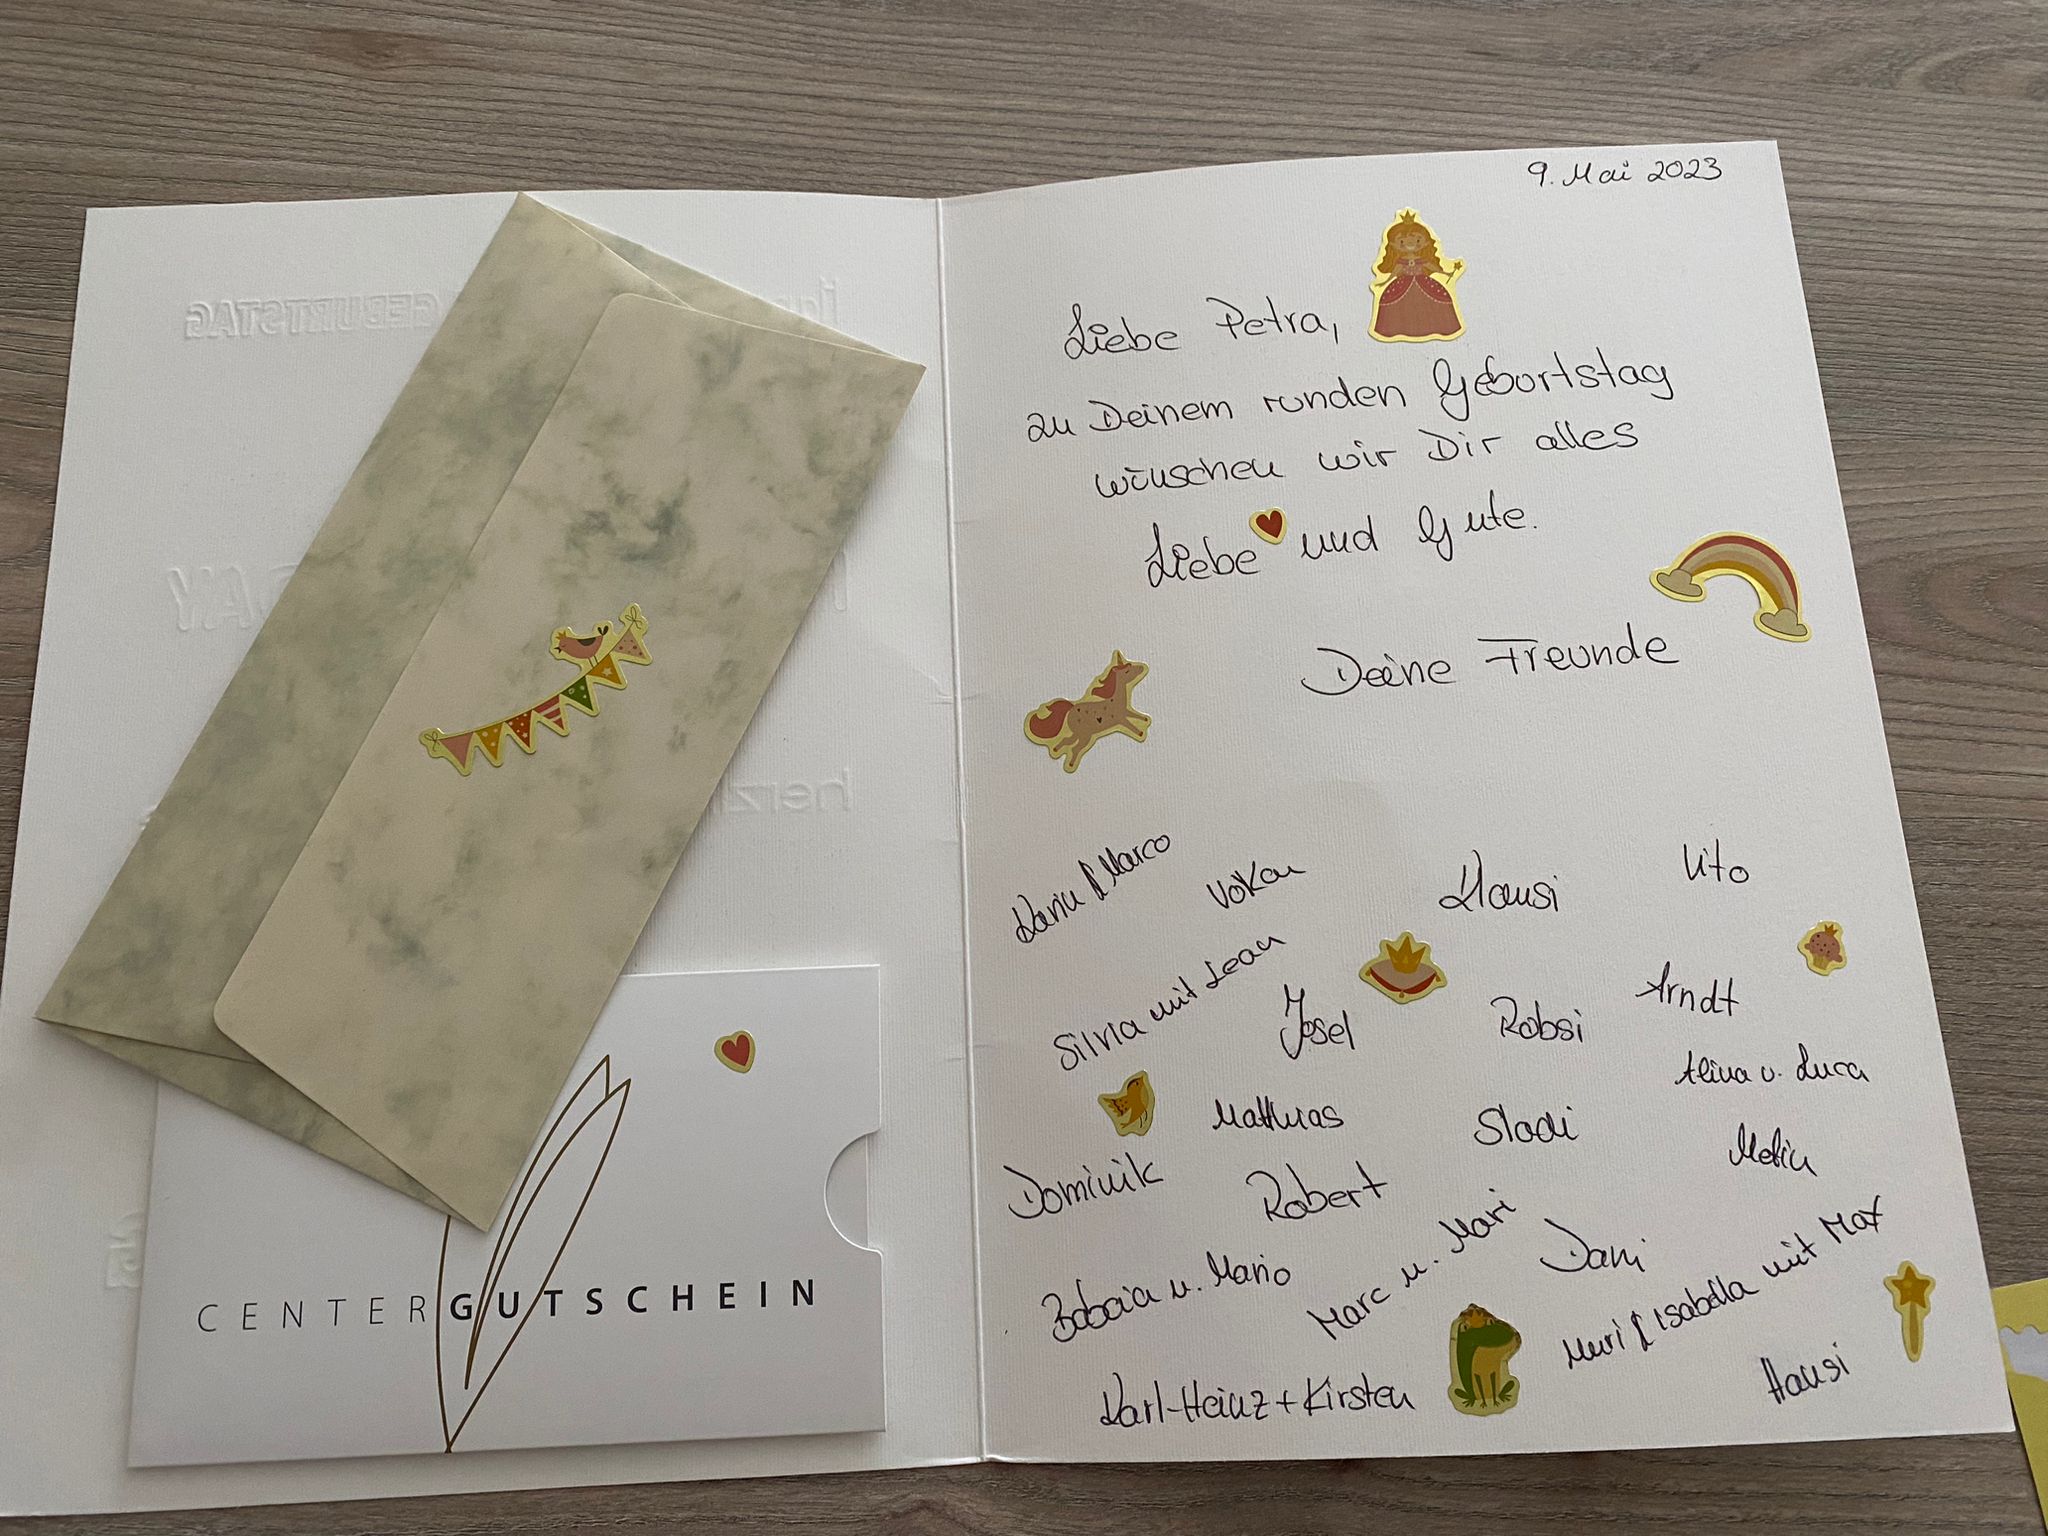 GEBURTSTAG
CENTERGUTSCHEIN
9. Mai 2023
Liebe Petra,
zu Deinem runden Geburtstag
wünschen wir Dir alles
Liebe und Gute.
Deine Freunde
Karin & Marco
Volkan
Klausi
Vito
Silvia mit Lean
Josel
Robsi
Arndt
Alina u. Luca
Mathias
Sladi
Metin
Dominik
Robert
u. Mario
Marc u. Mari
Dani
Muri & Isabella mit Max
Karl-Heinz + Kirsten
Hansi